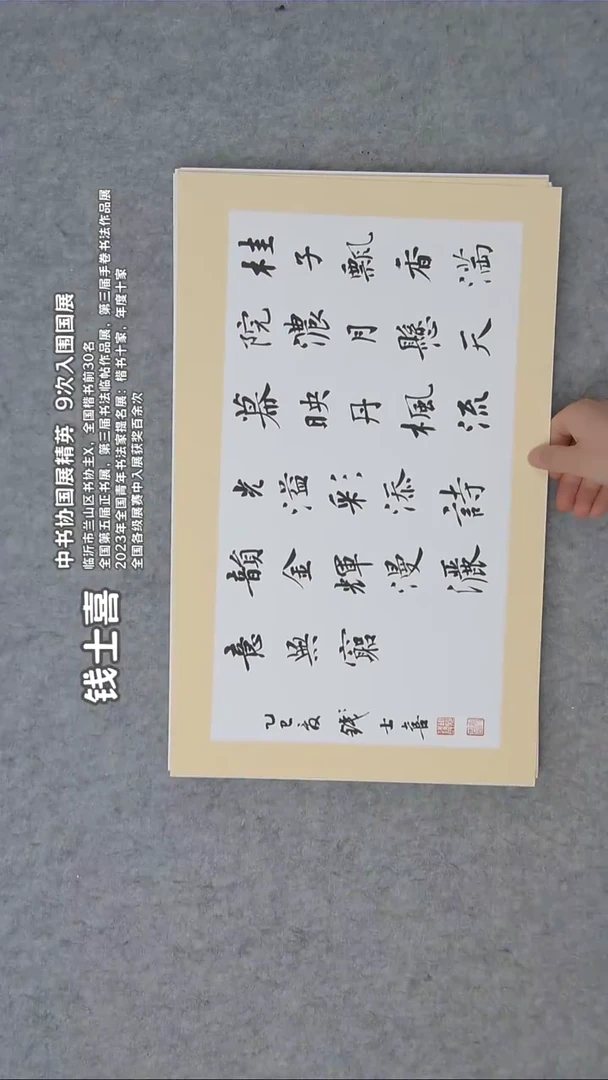 钱士喜
中书协国展精英 9次入围国展
临沂市兰山区书协主X，全国楷书前30名
全国第五届正书展，第三届书法临帖作品展，第三届手卷书法作品展
2023年全国青年书法家提名展；楷书十家，年度十家
全国各级展赛中入展获奖百余次
桂子飄香滿
院濃月懸天
幕映丹楓流
光溢彩添詩
韻金輝漫灑
意無窮
乙巳夏錢士喜